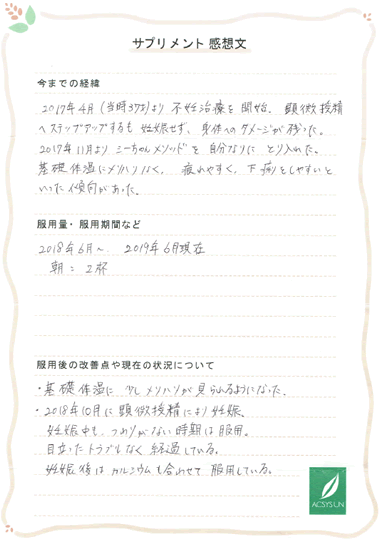 サプリメント 感想文
今までの経緯
2017年4月(当時37才)より 不妊治療を 開始。 顕微授精
へ ステップアップするも 妊娠せず、身体への ダメージが 残った。
2017年11月より シーちゃんメソッドを 自分なりに とり入れた。
基礎体温に メリハリなく、 疲れやすく、下痢をしやすいと
いった傾向があった。
服用量・服用期間など
2018年6月〜 2019年6月現在
朝: 2杯
服用後の改善点や現在の状況について
・基礎体温に 少しメリハリが 見られるようになった。
・2018年10月に 顕微授精により 妊娠。
妊娠中も、つわりがない時期は服用。
目立ったトラブルなく 経過している。
妊娠後は カルシウムも合わせて 服用している。
ACSYSUN